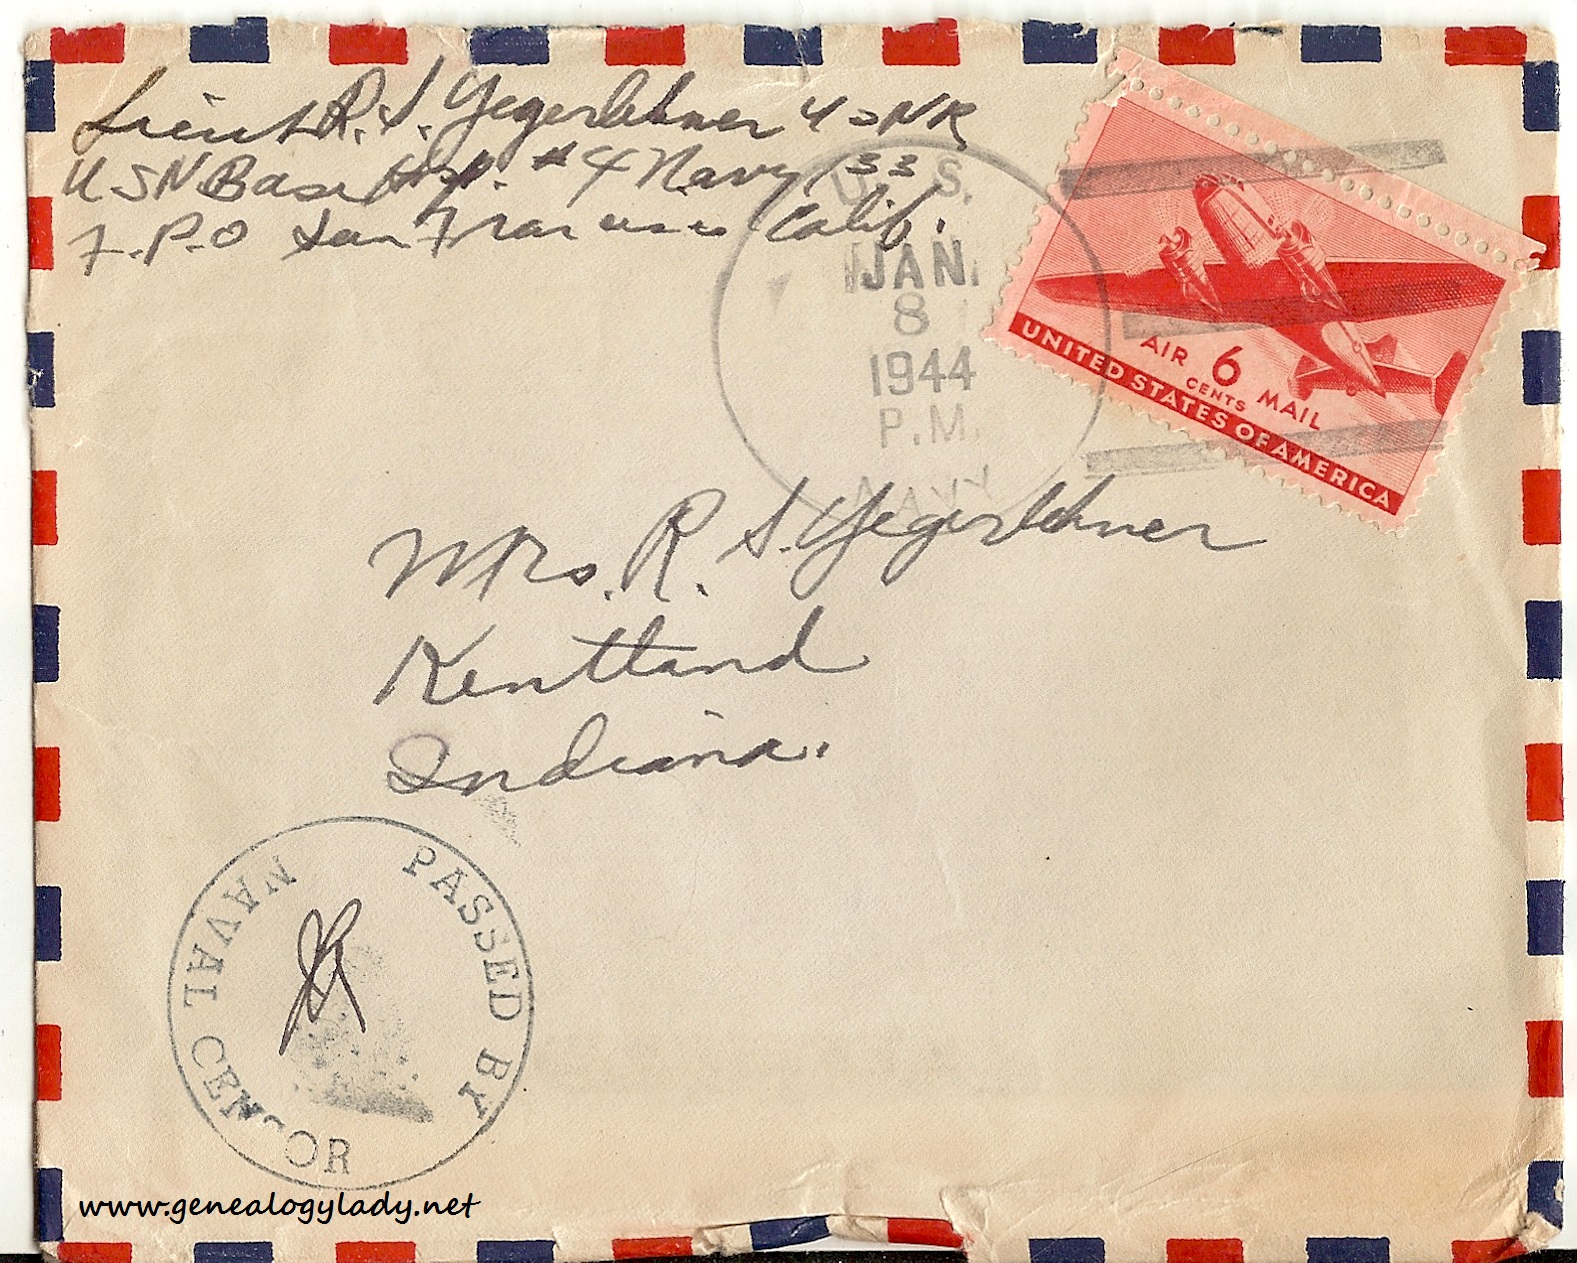 Lieut R.S. Yegerlehner USNR
USN Base Hosp. #4 Navy 133
F.P.O San Francisco Calif.
U.S.
JAN
8
1944
P.M.
NAVY
AIR 6 CENTS MAIL
UNITED STATES OF AMERICA
Mrs. R. S. Yegerlehner
Kentland
Indiana.
PASSED BY
NAVAL CENSOR
www.genealogylady.net